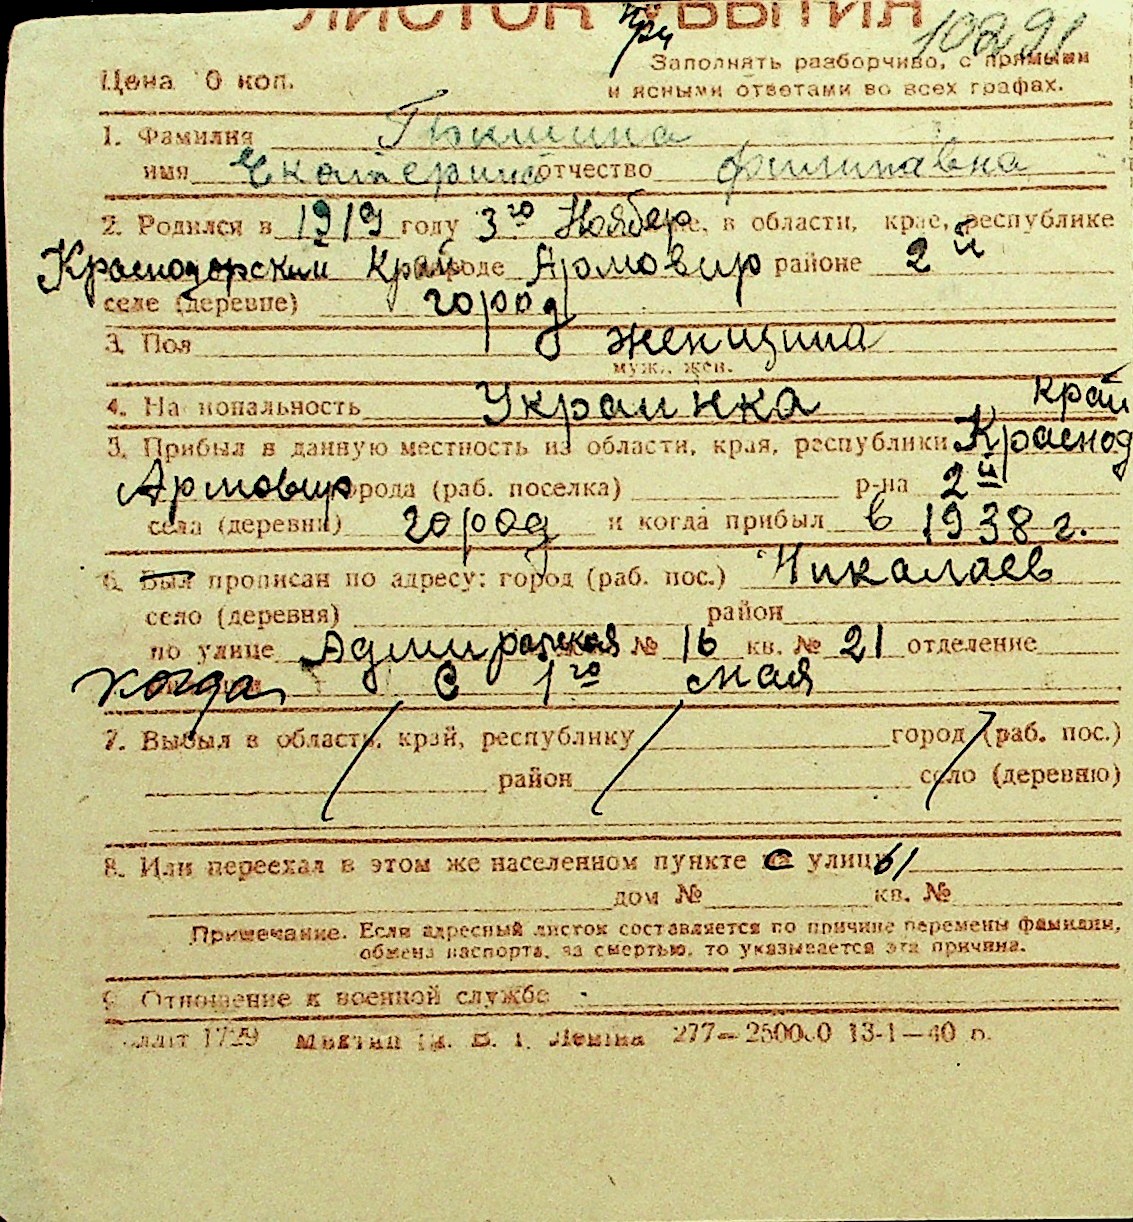 ЛИСТОК ПриБЫТИЯ
10291
Заполнять разборчиво, с прямыми
Цена 0 коп. и ясными ответами во всех графах.
1. Фамилия
имя Екатерина отчество Филиппавна
2. Родился в 1919 году 3го Ноября, в области, крае, республике
Краснодарский край городе Армовир районе 2й
селе (деревне) город
3. Пол женщина
муж., жен.
4. Национальность Украинка
край
5. Прибыл в данную местность из области, края, республики Краснод
Армовир города (раб. поселка) р-на 2й
села (деревни) город и когда прибыл в 1938 г.
6. Был прописан по адресу: город (раб. пос.) Никалаев
село (деревня) район
по улице Адмиралская № 16 кв. № 21 отделение
когда с 1го мая
7. Выбыл в область, край, республику город (раб. пос.)
район село (деревню)
8. Или переехал в этом же населенном пункте с улицы
дом № кв. №
Примечание. Если адресный листок составляется по причине перемены фамилии,
обмена паспорта, за смертью, то указывается эта причина.
9. Отношение к военной службе
1729 Ленина 277—250000 13-1—40 р.